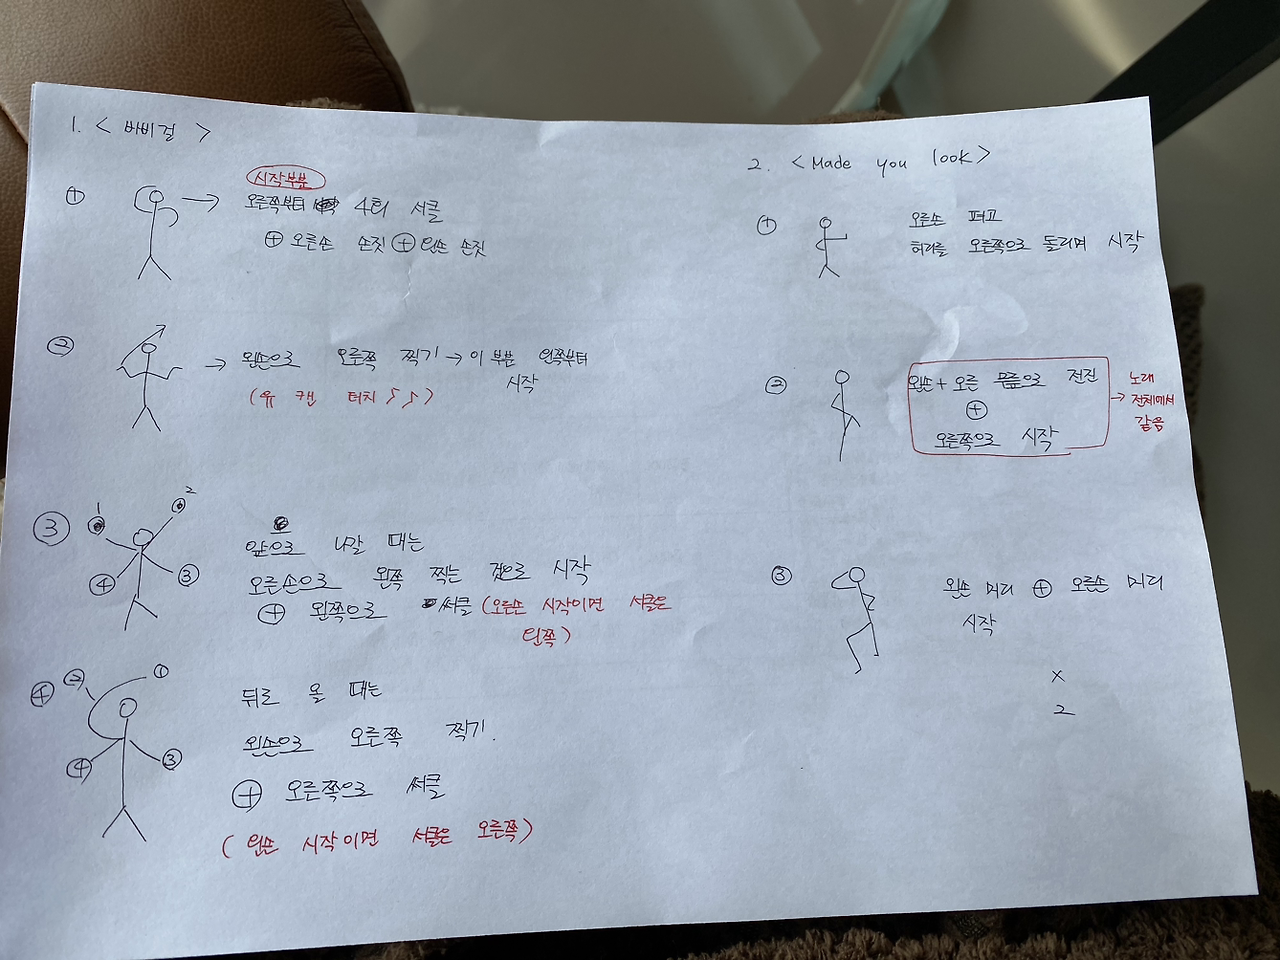 1. < 바비걸 >
①
시작부분
오른쪽부터 4회 서클
⊕ 오른손 손짓 ⊕ 왼손 손짓
②
왼손으로 오른쪽 찍기 → 이 부분 왼쪽부터
시작
(유 캔 터치 ♪ ♪)
③
1
2
④
③
앞으로 나갈 때는
오른손으로 왼쪽 찍는 것으로 시작
⊕ 왼쪽으로 써클 (오른손 시작이면 서클은
왼쪽)
④
②
①
④
③
뒤로 올 때는
왼손으로 오른쪽 찍기.
⊕ 오른쪽으로 써클
(왼손 시작이면 서클은 오른쪽)
2. <Made you look>
①
오른손 펴고
허리를 오른쪽으로 돌리며 시작
②
왼손 + 오른 무릎으로 전진
⊕
오른쪽으로 시작
→ 노래
전체에서
같음
③
왼손 머리 ⊕ 오른손 머리
시작
x
2